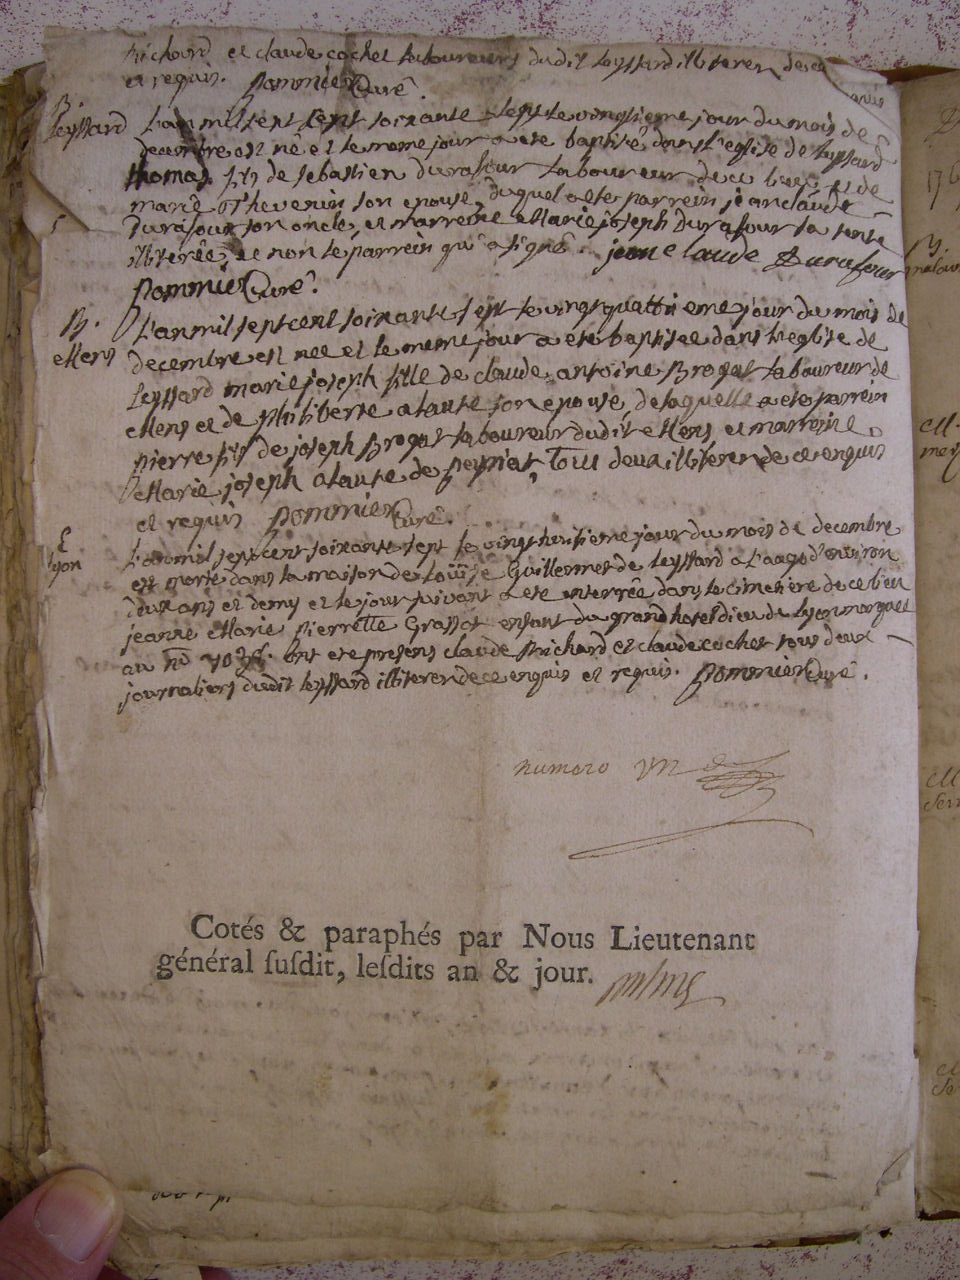 Richard et claude cochet laboureurs dudit leyssard illiteren de ce
et requis. Pommier Curé.
B.
leyssard
L'an mil sept cent soixante sept le vingtieme jour du mois de
decembre est né et le meme jour a eté baptisé dans l'eglise de leyssard
thomas fils de sebastien durafour laboureur de ce lieu et de
marie Thevenin son epouse, duquel a eté parrein jean claude
Durafour son oncle, et marreine Marie joseph Durafour sa tente
illiterée, et non le parrein qui a signé. jean claude Durafour
Pommier Curé.
B.
Mens
L'an mil sept cent soixante sept le vingt quattrieme jour du mois de
decembre est nee et le meme jour a eté baptisee dans l'eglise de
Leyssard marie joseph fille de claude antoine Brogat laboureur de
Mens et de philiberte alaute son epouse, de laquelle a eté parrein
pierre fils de joseph Brogat laboureur dudit Mens et marreine
Marie joseph alaute de peyriat, tous deux illiteren de ce enquis
et requis Pommier Curé.
L'an mil sept cent soixante sept le vingt huitieme jour du mois de decembre
est morte dans la maison de Louise Guillermet de leyssard a l'aage d'environ
deux ans et demy et le jour suivant a eté interrée dans le cimetiere de ce lieu
jeanne Marie Pierrette Grassot enfant du grand hotel dieu de lyon marquée
au no ont eté presens claude Richard et claude cochet tous deux
journaliers dudit leyssard illiteren de ce enquis et requis. Pommier Curé.
numero
Cotés & paraphés par Nous Lieutenant
général ſuſdit, leſdits an & jour.